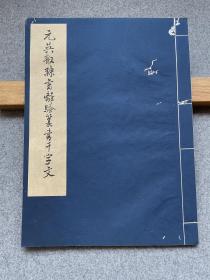 元吳叡隸書離騷篆書千字文